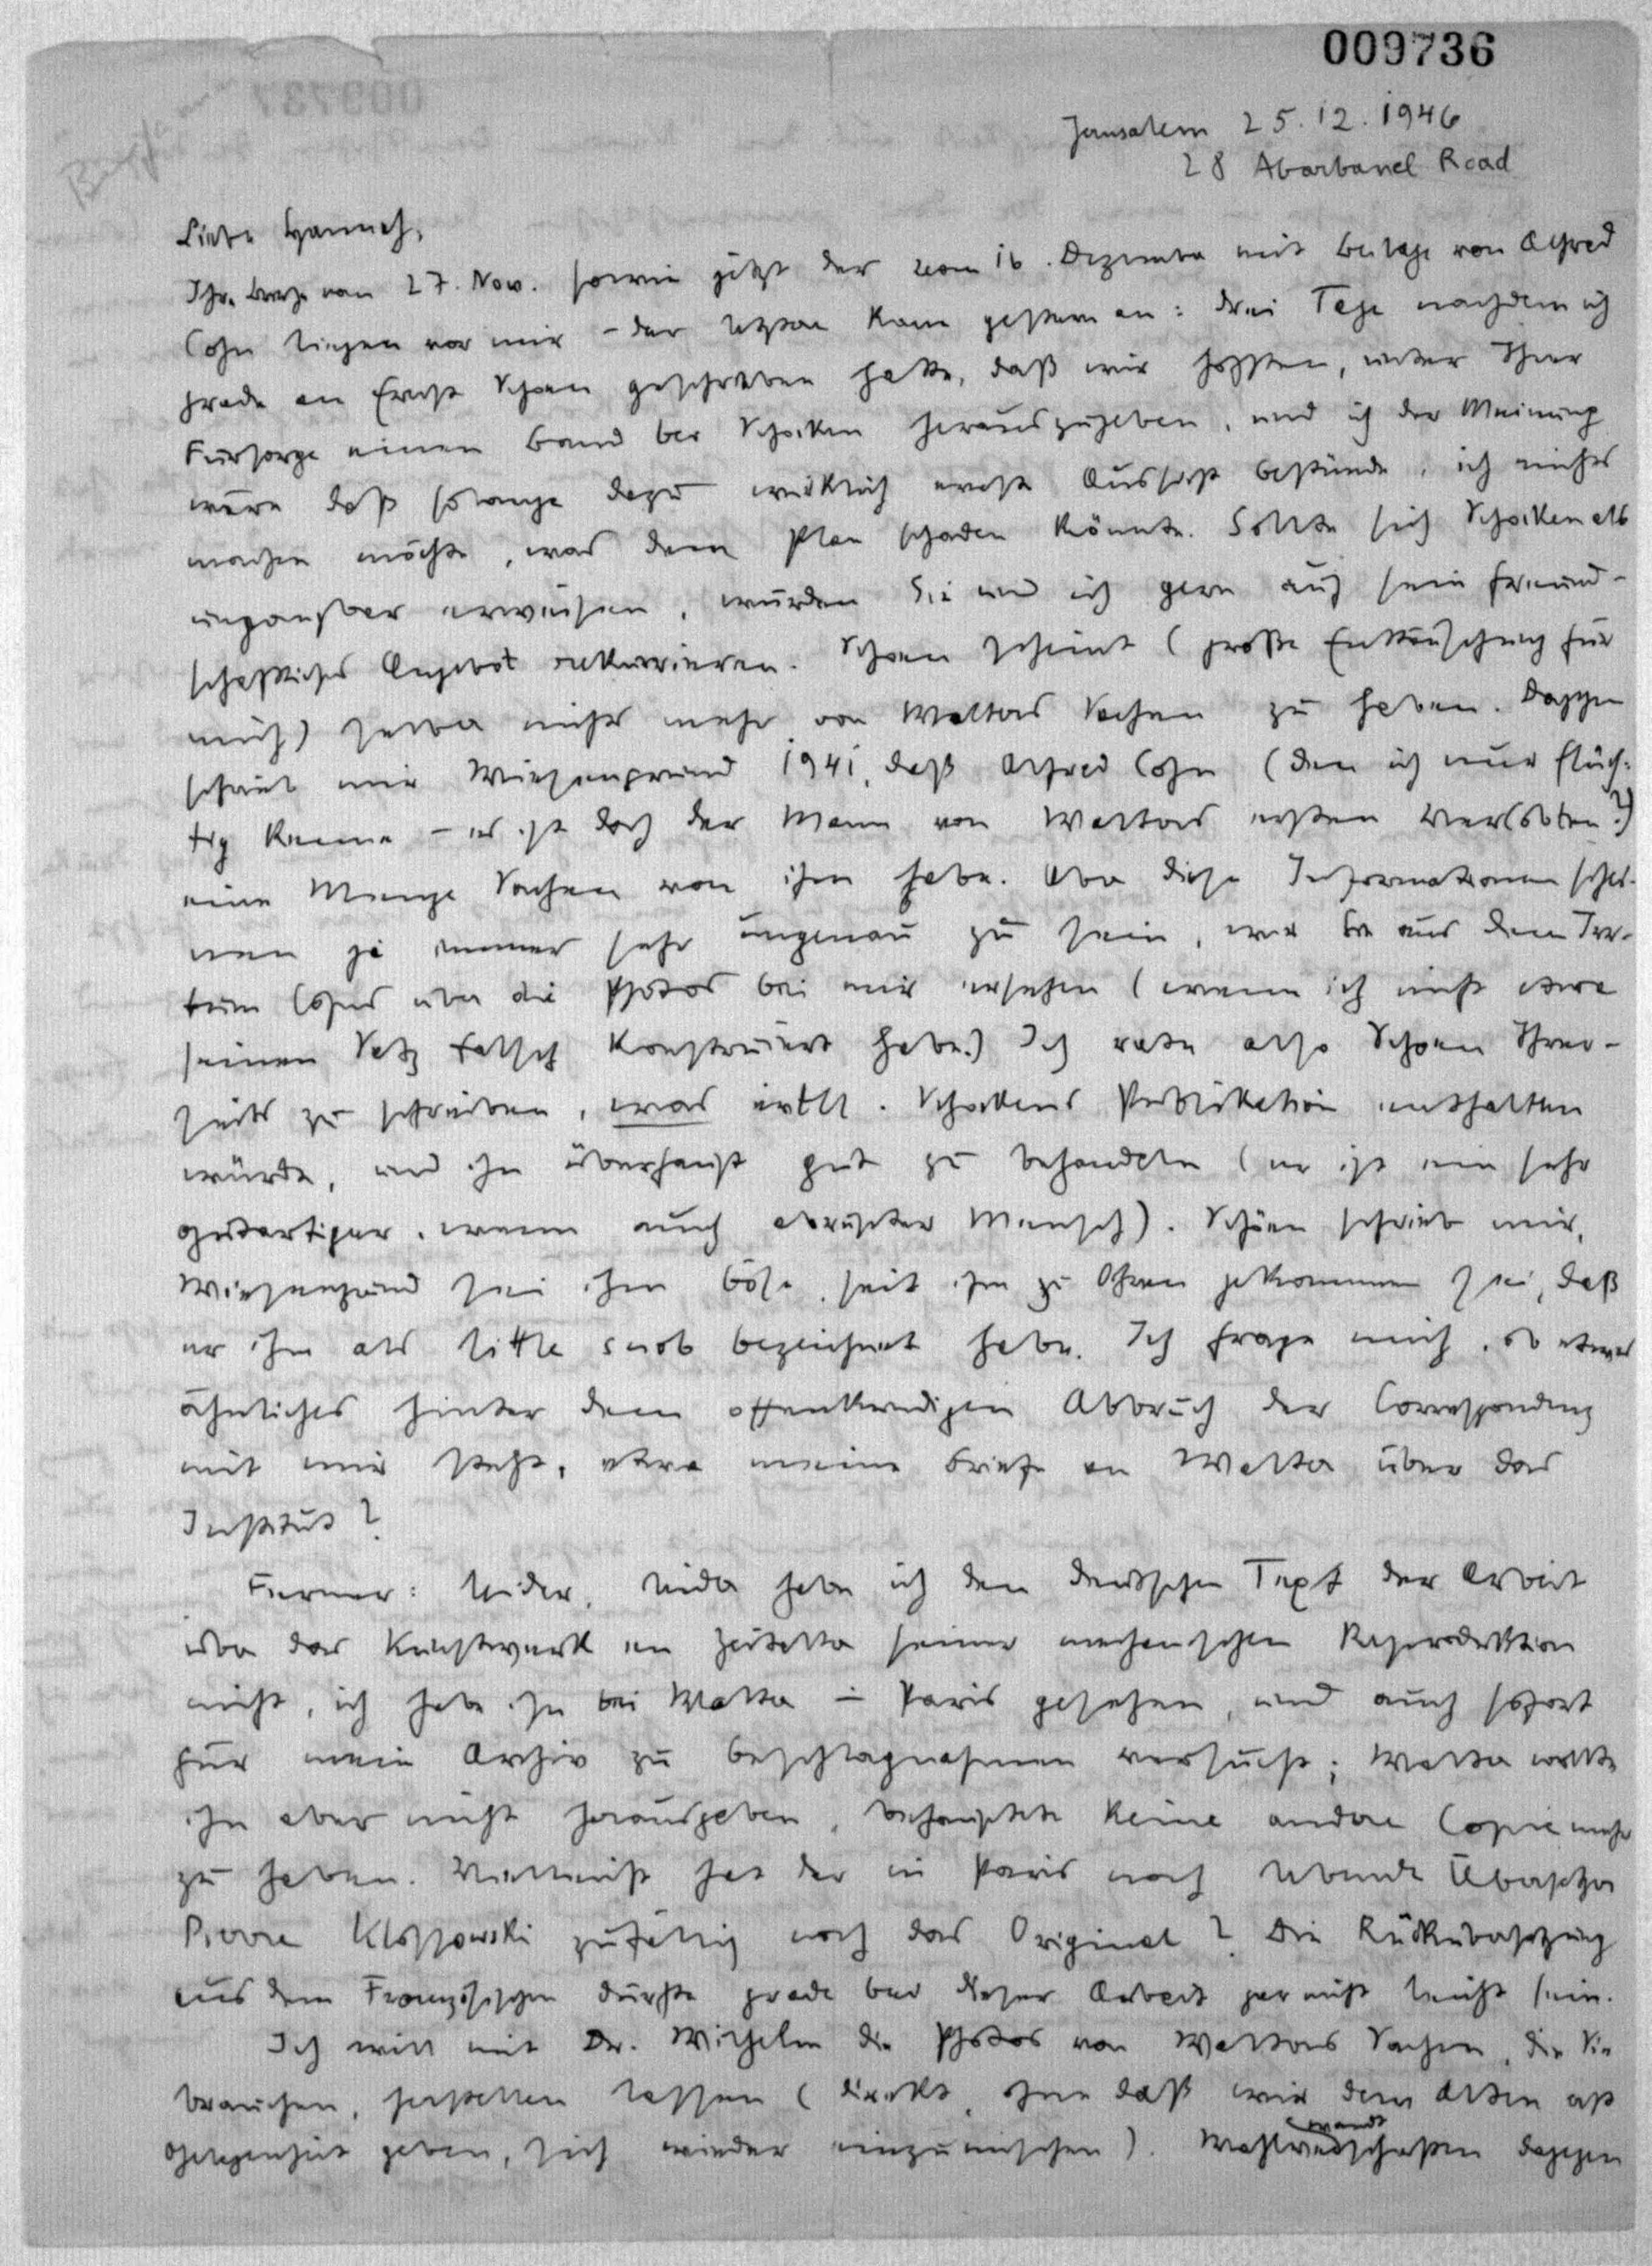 009736
Jerusalem 25.12.1946
28 Abarbanel Road
Liebe Hannah,
Ihr Brief vom 27. Nov. sowie jetzt der vom 16. Dezember mit Beilage von Alfred
Cohn liegen vor mir – der letztere kam gestern an: drei Tage nachdem ich
grade an Ernst Schoen geschrieben hatte, daß wir hofften, unter Ihrer
Fürsorge einen Band bei Schocken herauszugeben, und ich der Meinung
wäre daß solange dazu wirklich ernste Aussicht bestünde, ich nichts
machen möchte, was dem Plan schaden könnte. Sollte sich Schocken als
ungangbar erweisen, würden Sie und ich gern auf sein freund-
schaftliches Angebot rekurrieren. Schoen scheint (große Enttäuschung für
mich) selber nichts mehr von Walters Sachen zu haben. Dagegen
schrieb mir Wiesengrund 1941, daß Alfred Cohn (den ich nur flüch-
tig kenne – es ist doch der Mann von Walters ersten Verlobten?)
eine Menge Sachen von ihm habe. Aber diese Informationen schei-
nen ja immer sehr ungenau zu sein, wie Sie aus dem Irr-
tum Cohns über die Photos bei mir ersehen (wenn ich nicht etwa
seinen Satz falsch konstruiert habe.) Ich rate also Schoen Ihrer-
seits zu schreiben, was evtll. Schockens Publikation enthalten
würde, und ihn überhaupt gut zu behandeln (er ist ein sehr
gutartiger, wenn auch abrupter Mensch). Schoen schrieb mir,
Wiesengrund sei ihm böse, seit ihm zu Ohren gekommen sei, daß
er ihn als little snob bezeichnet habe. Ich frage mich, ob etwas
ähnliches hinter dem offenkundigen Abbruch der Correspondenz
mit mir steht, etwa meine Briefe an Walter über das
Institut?
Ferner: leider, leider habe ich den deutschen Text der Arbeit
über das Kunstwerk im Zeitalter seiner mechanischen Reproduktion
nicht, ich habe ihn bei Walter in Paris gesehen, und auch sofort
für mein Archiv zu beschlagnahmen versucht; Walter wollte
ihn aber nicht herausgeben, behauptete keine andere Copie mehr
zu haben. Vielleicht hat der in Paris noch lebende Übersetzer
Pierre Klossowski zufällig noch das Original? Die Rückübersetzung
aus dem Französischen dürfte grade bei dieser Arbeit gar nicht leicht sein.
Ich will mit Dr. Wilhelm die Photos von Walters Sachen, die Sie
brauchen, herstellen lassen (direkt, ohne daß wir dem Alten erst
Gelegenheit geben, sich wieder einzumischen). Wahlverwandtschaften dagegen